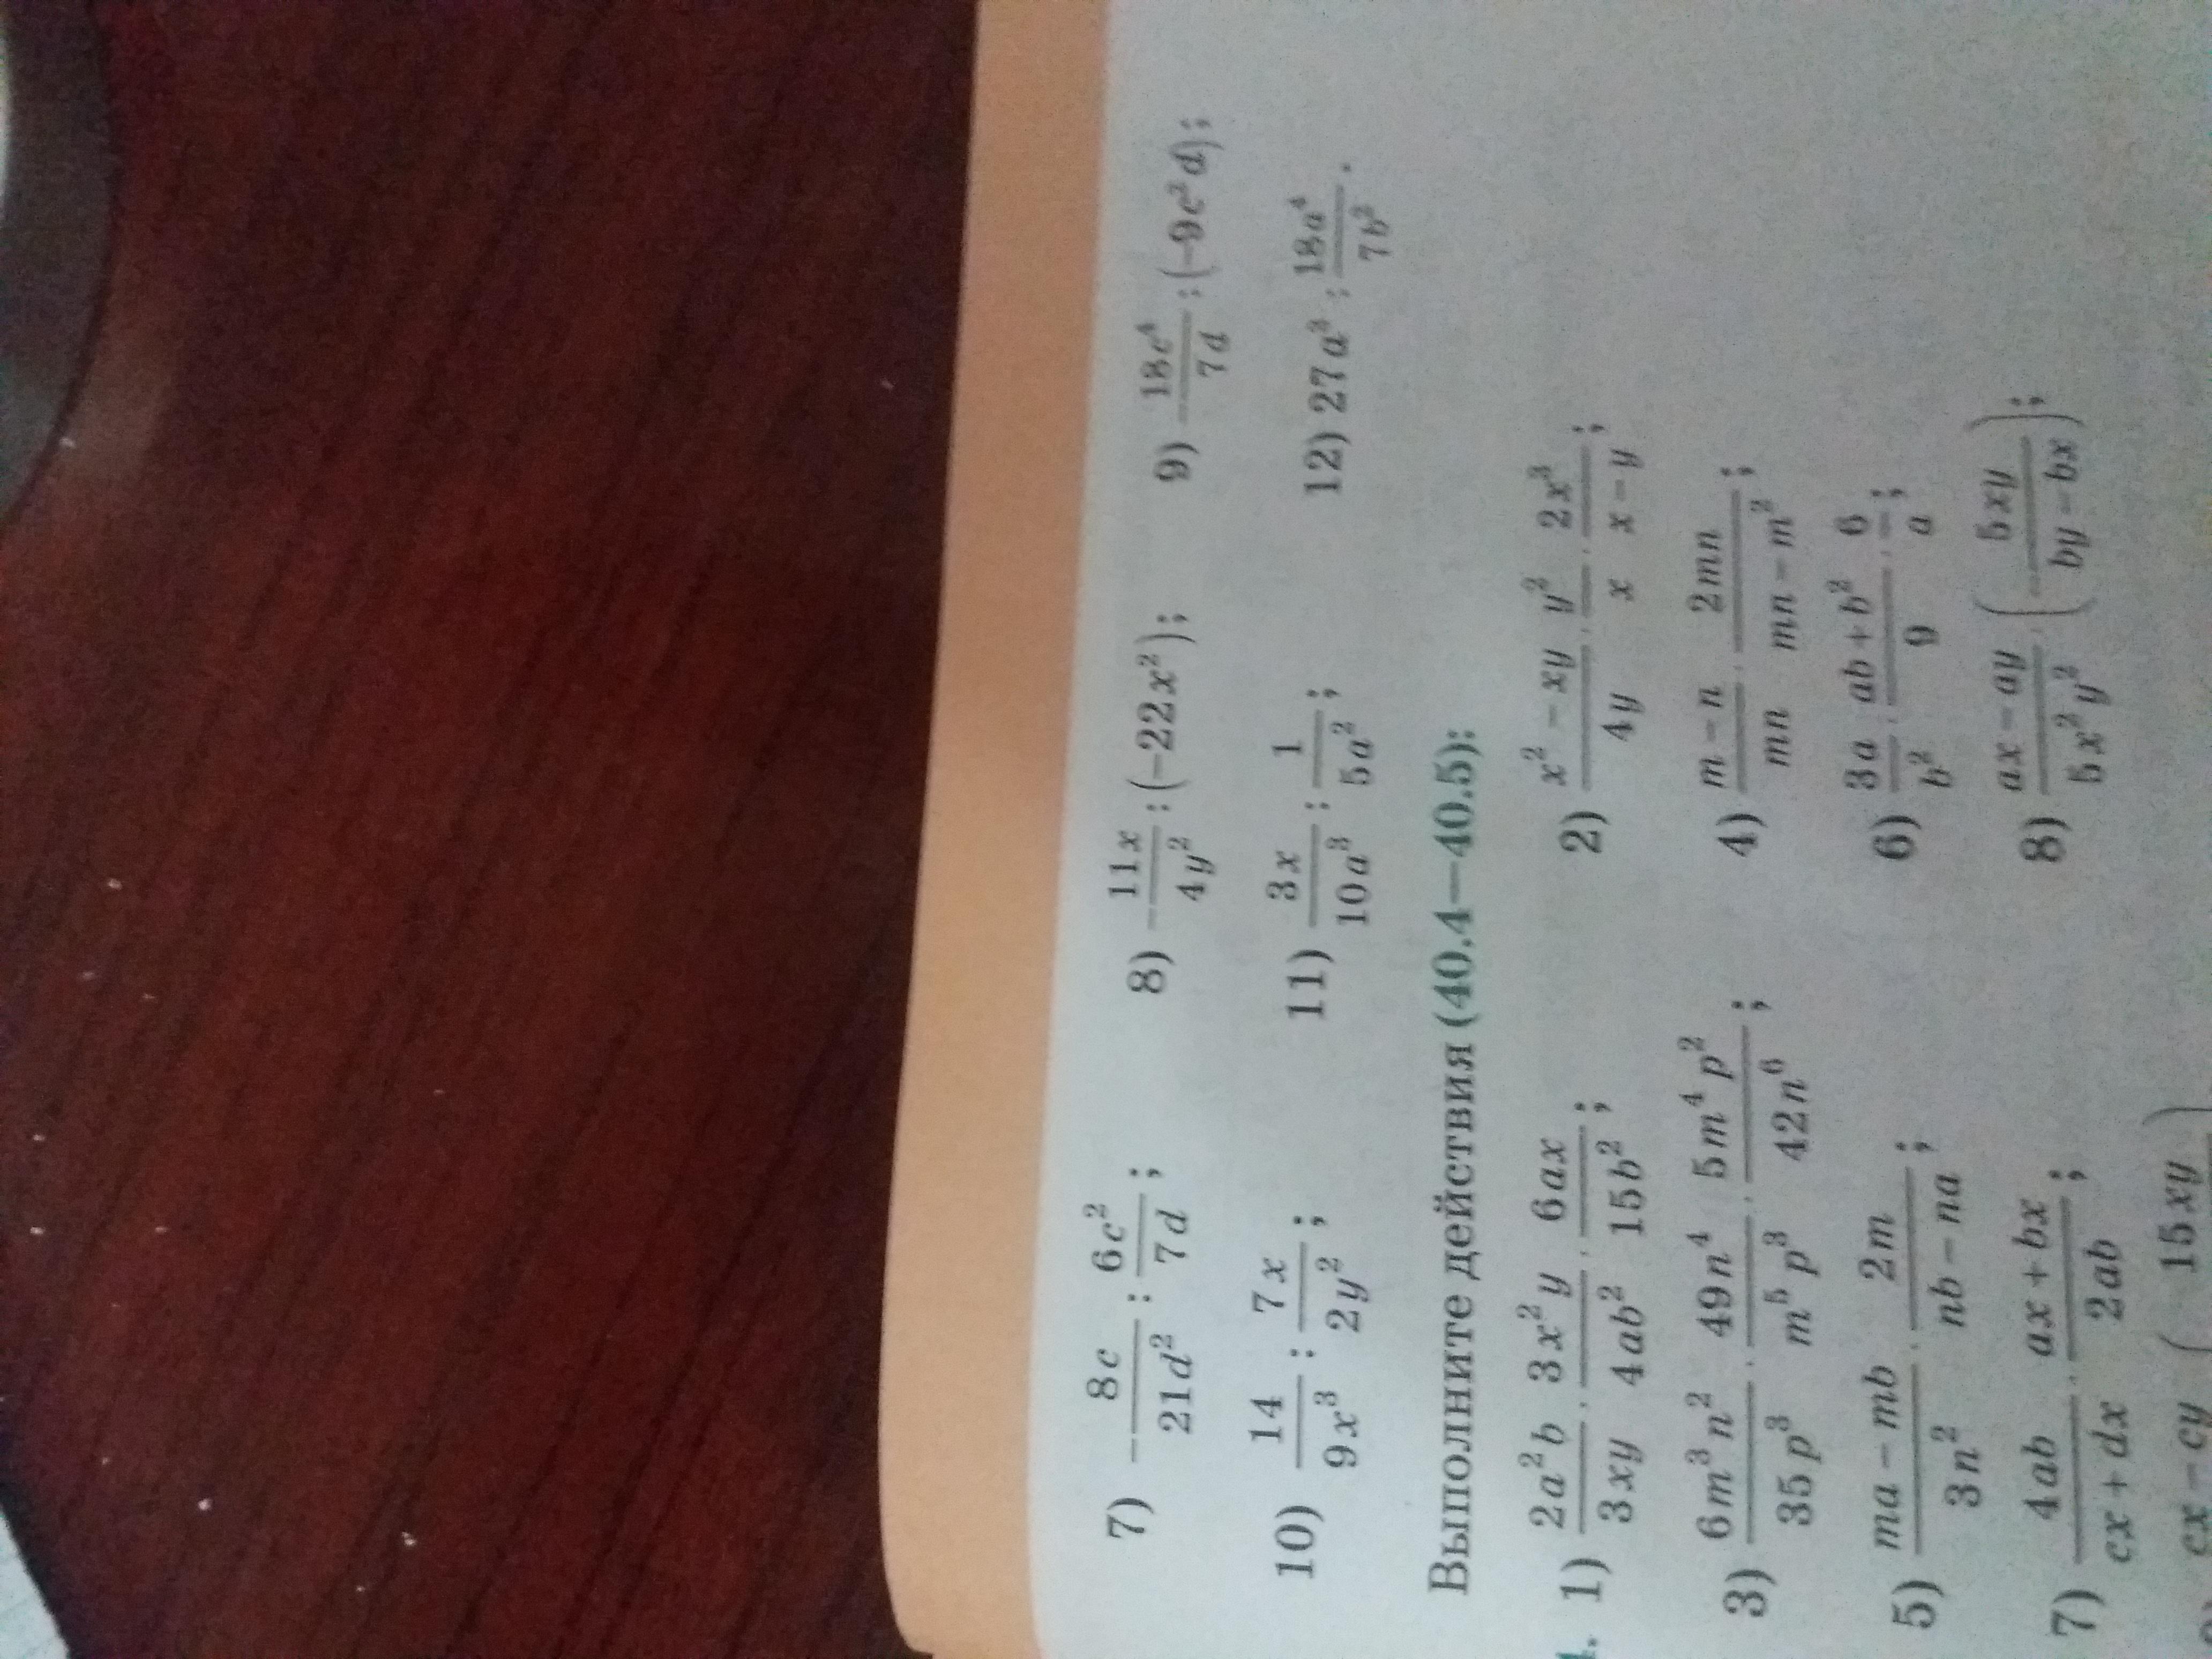 7) −8c/21d² : 6c²/7d; 8) −11x/4y² : (−22x²); 9) 18c⁴/7d : (−9c²d);
10) 14/9x³ : 7x/2y²; 11) 3x/10a³ : 1/5a²; 12) 27a³ : 18a⁴/7b².
Выполните действия (40.4—40.5):
4. 1) 2a²b/3xy · 3x²y/4ab² · 6ax/15b²; 2) x² − xy/4y · y²/x · 2x³/x − y;
3) 6m³n²/35p³ · 49n⁴/m⁵p³ · 5m⁴p²/42n⁶; 4) m − n/mn · 2mn/mn − m²;
5) ma − mb/3n² · 2m/nb − na; 6) 3a/b² · ab + b²/9 · 6/a;
7) 4ab/cx + dx · ax + bx/2ab; 8) ax − ay/5x²y² · (−5xy/by − bx);
cx − cy ( 15xy )